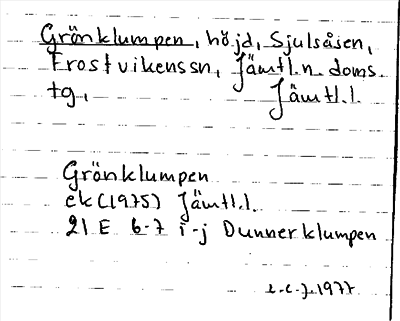 Gränklumpen, höjd, Sjulsåsen,
Frostvikenssn, Jämtl.n. doms.
tg., Jämtl.l.
Gränklumpen
ek (1975) Jämtl.l.
21 E 6-7 i-j Dunnerklumpen
1977